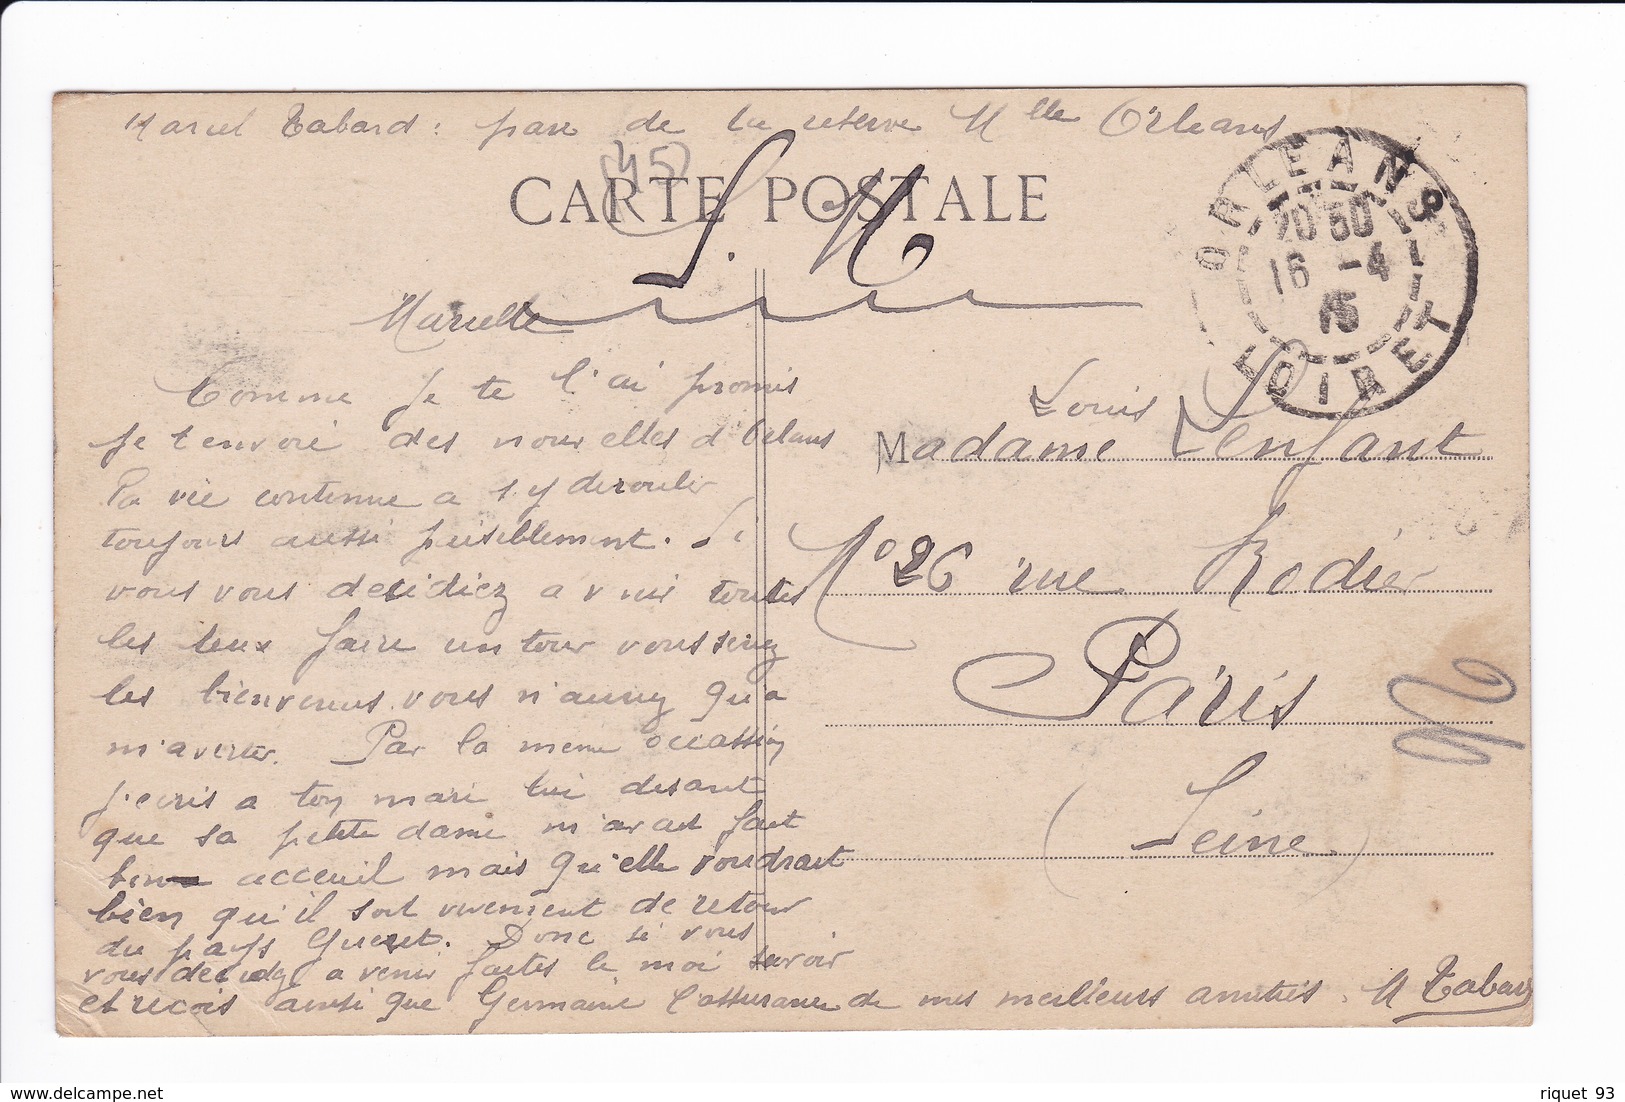 Marcel Tabard : parc de la reserve Mlle Orleans
(45)
CARTE POSTALE
S. M
ORLEANS
16 -4
15
LOIRET
Marcelle
Comme je te l'ai promis
je t envoie des nouvelles d Orleans
la vie continue a s y derouler
toujours aussi paisiblement. Si
vous vous decidiez a venir toutes
les deux faire un tour vous seriez
les bienvenus vous n'aurez qu'a
m'avertir. Par la meme occassion
j'ecris a ton mari lui disant
que sa petite dame m'avait fait
bon acceuil mais qu'elle voudrait
bien qu'il soit vivement de retour
du pays Gueret. Donc si vous
vous decidez a venir faites le moi savoir
et recois ainsi que Germaine l'assurance de mes meilleurs amitiés. M Tabard
Louis
Madame Lenfant
No 26 rue Rodier
Paris
(Seine)
riquet 93